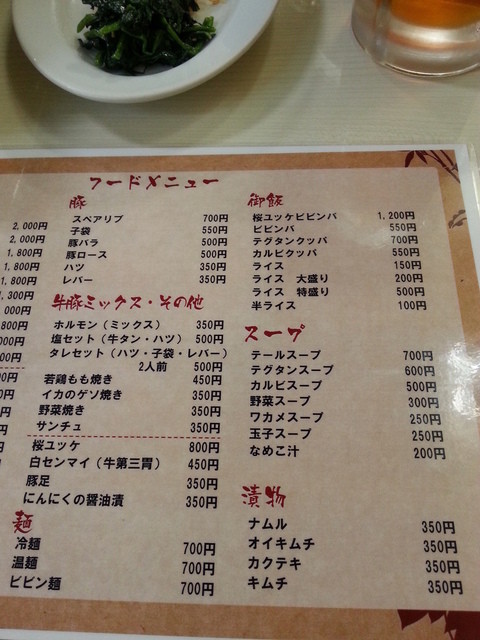 フードメニュー
2,000円
2,000円
1,800円
1,800円
1,800円
豚
スペアリブ 700円
子袋 550円
豚バラ 500円
豚ロース 500円
ハツ 350円
レバー 350円
牛豚ミックス・その他
ホルモン(ミックス) 350円
塩セット(牛タン・ハツ) 500円
タレセット(ハツ・子袋・レバー)
2人前 500円
若鶏もも焼き 450円
イカのゲソ焼き 350円
野菜焼き 350円
サンチュ 350円
桜ユッケ 800円
白センマイ(牛第三胃) 450円
豚足 350円
にんにくの醤油漬 350円
麺
冷麺 700円
温麺 700円
ビビン麺 700円
御飯
桜ユッケビビンバ 1,200円
ビビンバ 550円
テグタンクッパ 700円
カルビクッパ 550円
ライス 150円
ライス 大盛り 200円
ライス 特盛り 500円
半ライス 100円
スープ
テールスープ 700円
テグタンスープ 600円
カルビスープ 500円
野菜スープ 300円
ワカメスープ 250円
玉子スープ 250円
なめこ汁 200円
漬物
ナムル 350円
オイキムチ 350円
カクテキ 350円
キムチ 350円